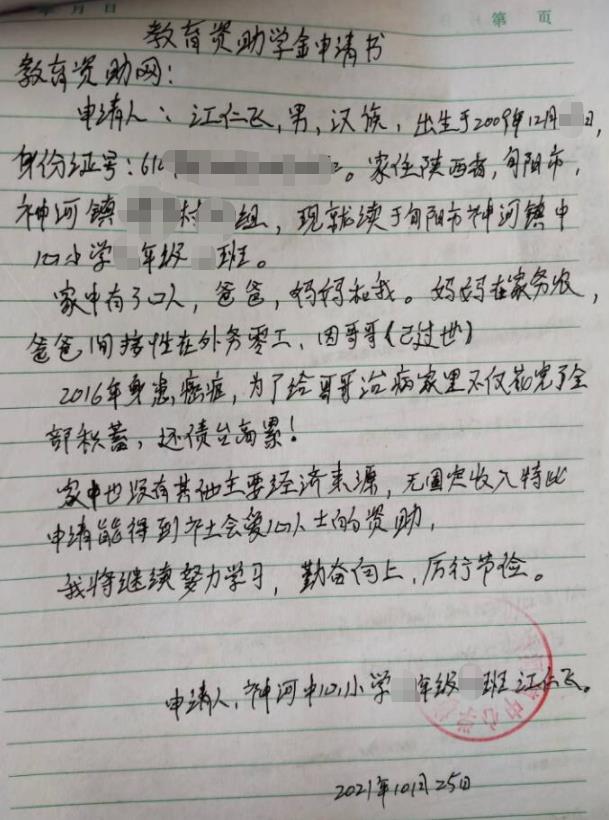 第 页
教育资助学金申请书
教育资助网：
申请人：江仁飞，男，汉族，出生于2009年12月 日，
身份证号：612 。家住陕西省，旬阳市，
神河镇 村 组，现就续于旬阳市神河镇中
心小学 年级 班。
家中有3口人，爸爸，妈妈和我。妈妈在家务农，
爸爸间接性在外务零工，因哥哥（已过世）
2016年身患癌症，为了给哥哥治病家里不仅花完了全
部积蓄，还债台高累！
家中也没有其他主要经济来源，无固定收入特此
申请能得到社会爱心人士的资助，
我将继续努力学习，勤奋向上，厉行节俭。
申请人，神河中心小学 年级 班 江仁飞。
2021年10月25日